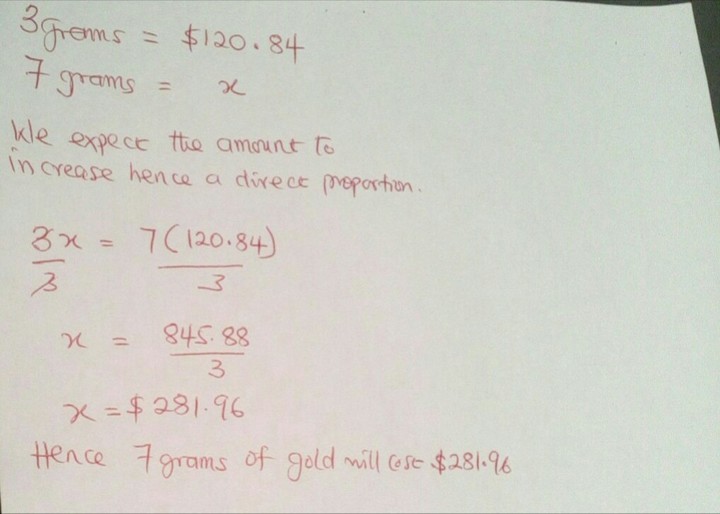 3 grams = $120.84
7 grams = x
We expect the amount to
increase hence a direct proportion.
3x = 7(120.84)
3 3
x = 845.88
3
x = $281.96
Hence 7 grams of gold will cost $281.96